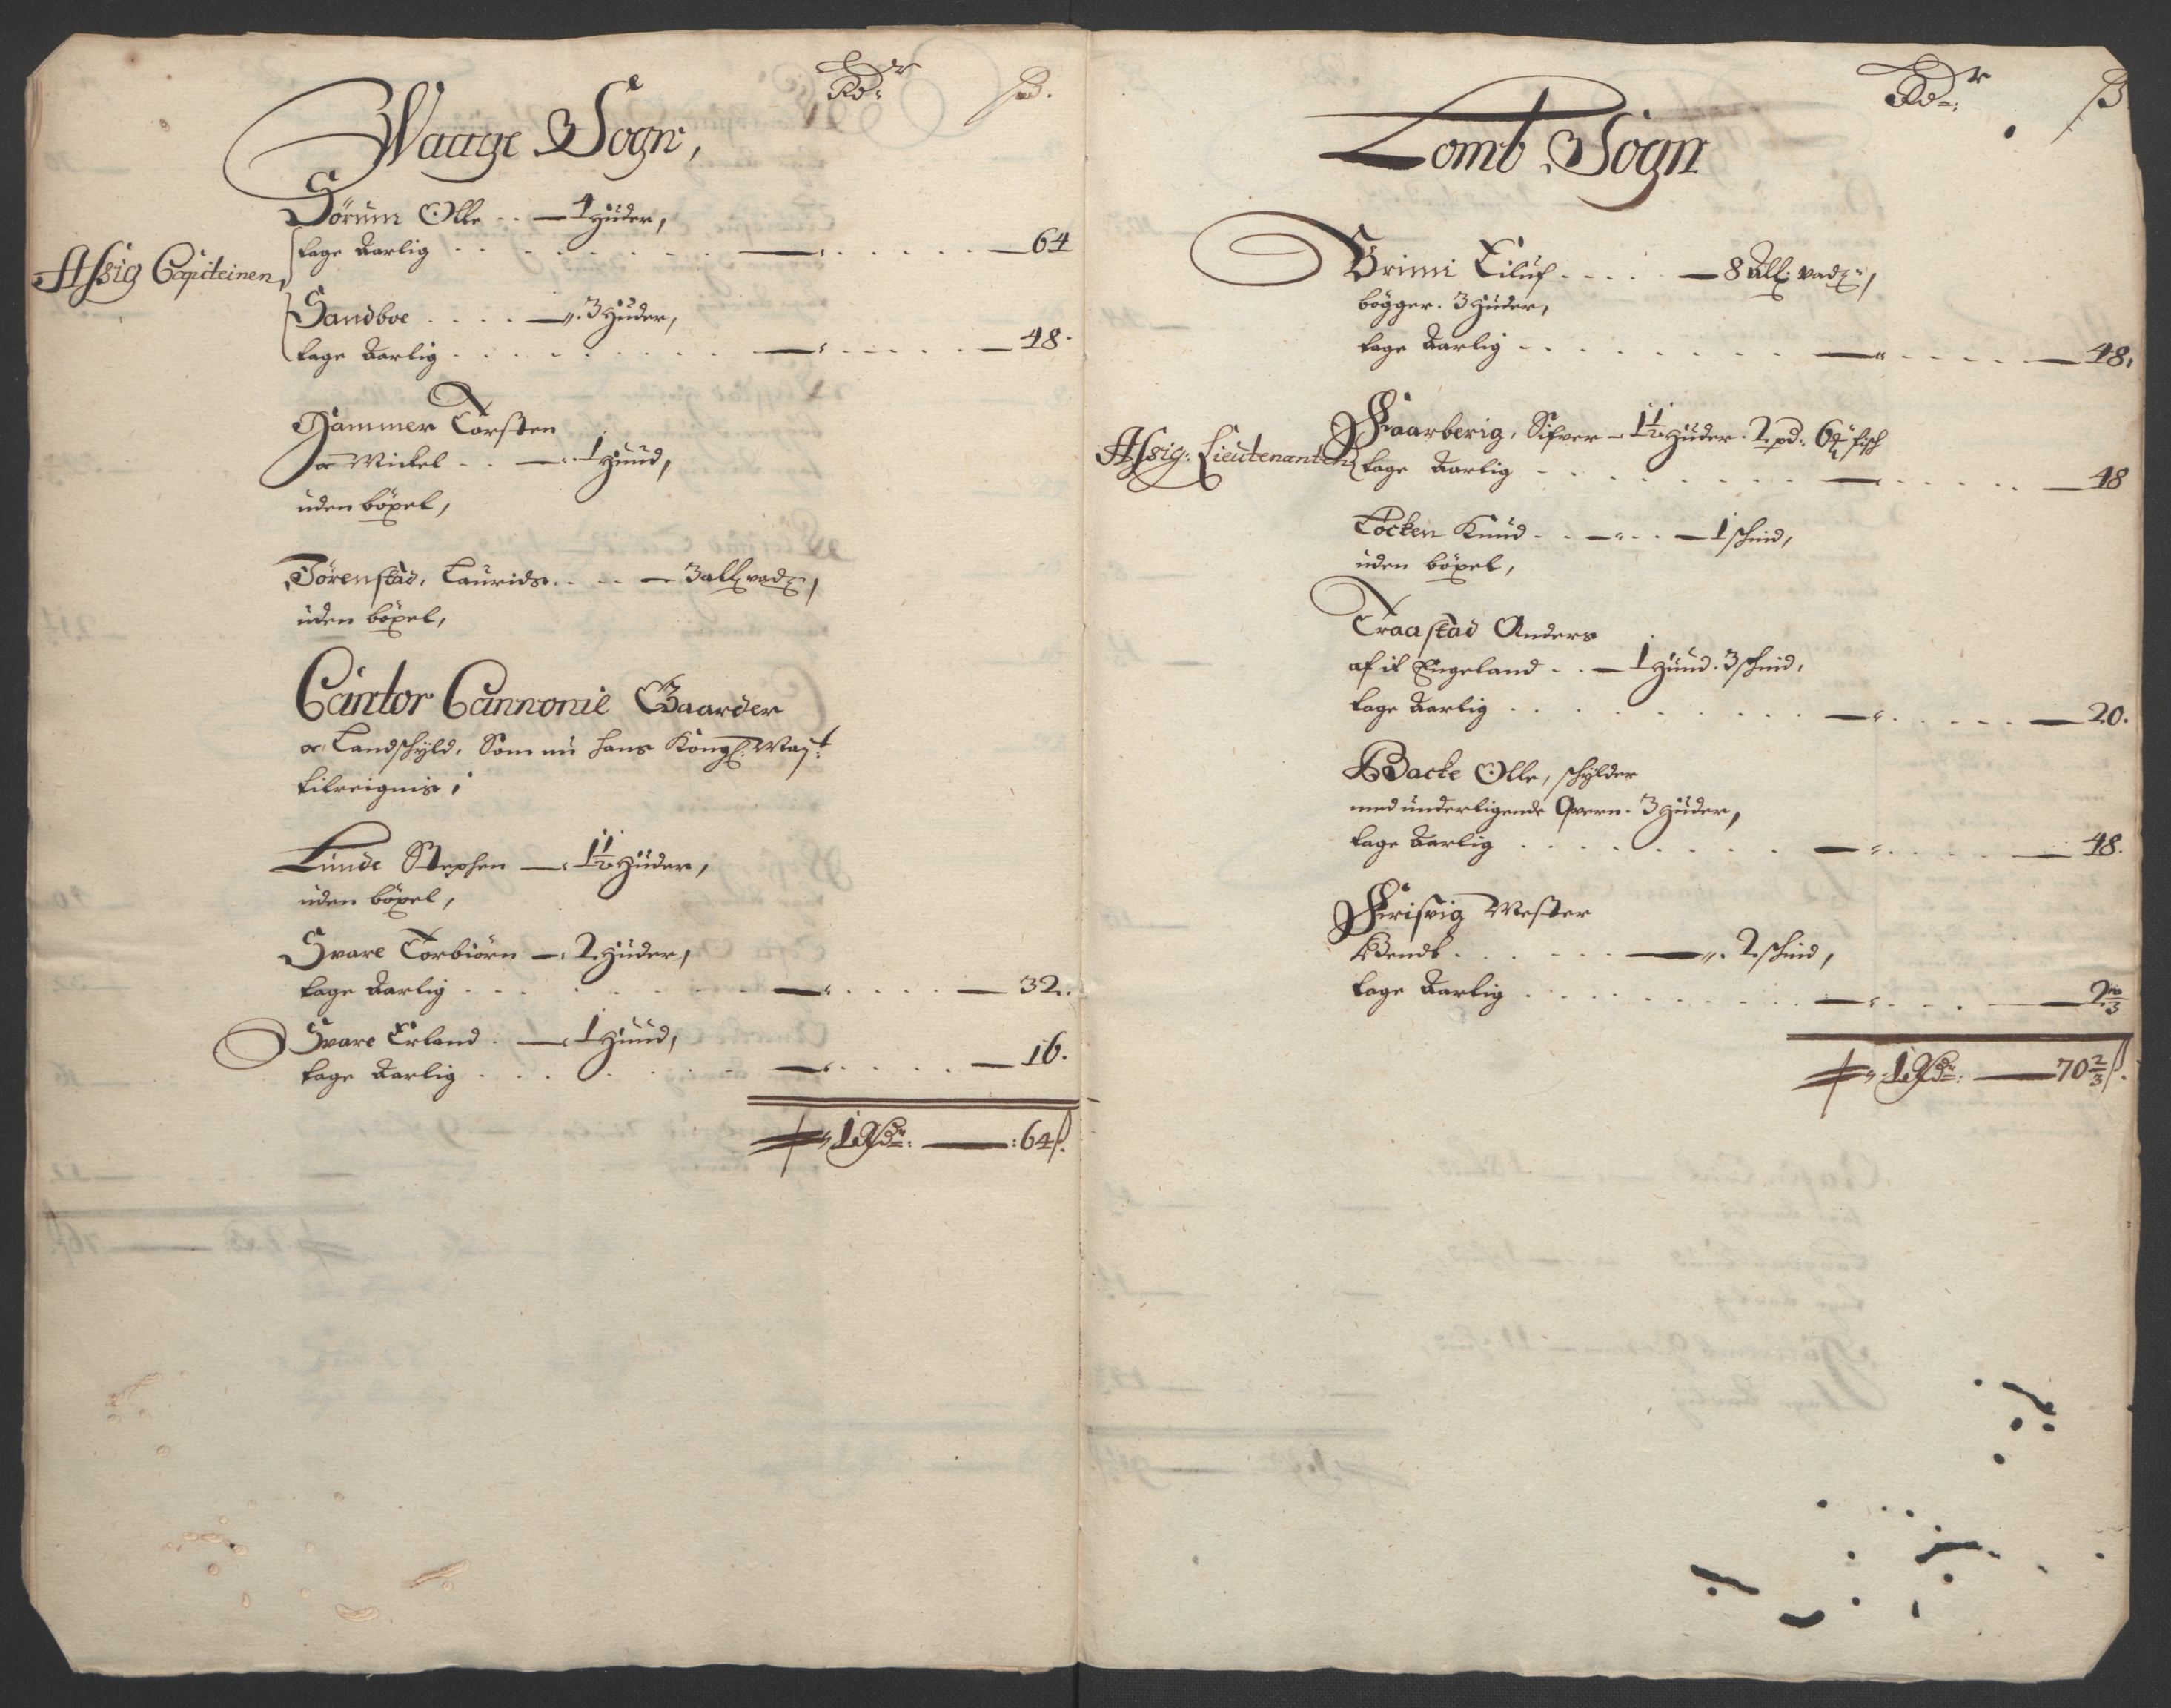 Rdr ß.
Waage Sogn,
Sörum Olle - - — 4 Huder,
tage Aarlig - - - — " - - - — 64
Assig Capiteinen,
Sandboe . . . . — ". 3 Huder,
tage Aarlig - - - — " - - - — 48.
Hammer Torsten
oc Mickel - - — . 1 Huud,
uden böxel,
Törenstad, Laurids. . . — 3 all vadm,
uden böxel,
Cantor Cannonie Gaarder
oc Landschyld, Som nu hans Kongl: Mayt:
tilreignis;
Lunde Stephen — " 1½ Huder,
uden böxel,
Svare Torbiörn — " 2 Huder,
tage Aarlig - - - — " - - - — 32.
Svare Erland . — " 1 Huud,
tage Aarlig . . . — " . . . — 16.
" 1 Rdr: — : 64 ß.
Rdr: ß
Lomb Sogn
Brimi Eiluf . . . . — 8 All: vadm,
bögger. 3 Huder,
tage Aarlig - - - — " - - - — 48,
Assig: Lieutenanten
Fraarberig, Sifver — 1½ Huder. 2 pd: 6 fisch
tage Aarlig - - - — - - - — 48
Löcken Knud . . — " . . — 1 schind,
uden böxel,
Traastad Anders
af it Engeland . . — 1 Huud. 3 schind,
tage Aarlig . . . — " . . . — 20.
Backe Olle, schylder
med underligende Qvern. 3 Huder,
tage Aarlig . . . — " . . . — 48.
Frisvig Mester
Bendt . . . — ". 2 schind,
tage Aarlig . . . — " . . . — 2⅔
" 1 Rdr: — 70⅔ ß.